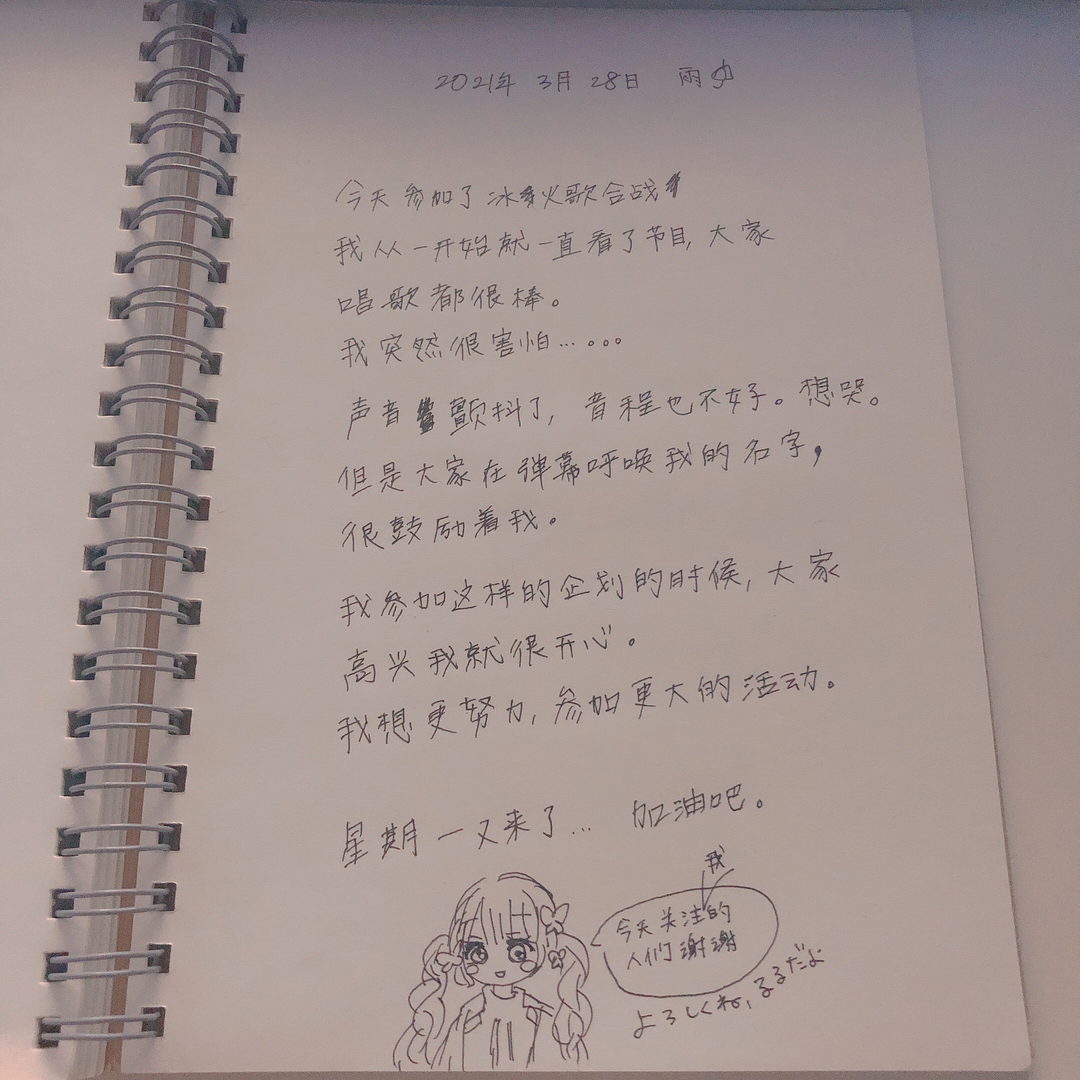 2021年 3月 28日 雨
今天参加了冰火歌合战
我从一开始就一直看了节目,大家
唱歌都很棒。
我突然很害怕…。。。
声音颤抖了,音程也不好。想哭。
但是大家在弹幕呼唤我的名字,
很鼓励着我。
我参加这样的企划的时候,大家
高兴我就很开心。
我想更努力,参加更大的活动。
星期一又来了… 加油吧。
我
今天关注的
人们谢谢
よろしくね、るるだよ